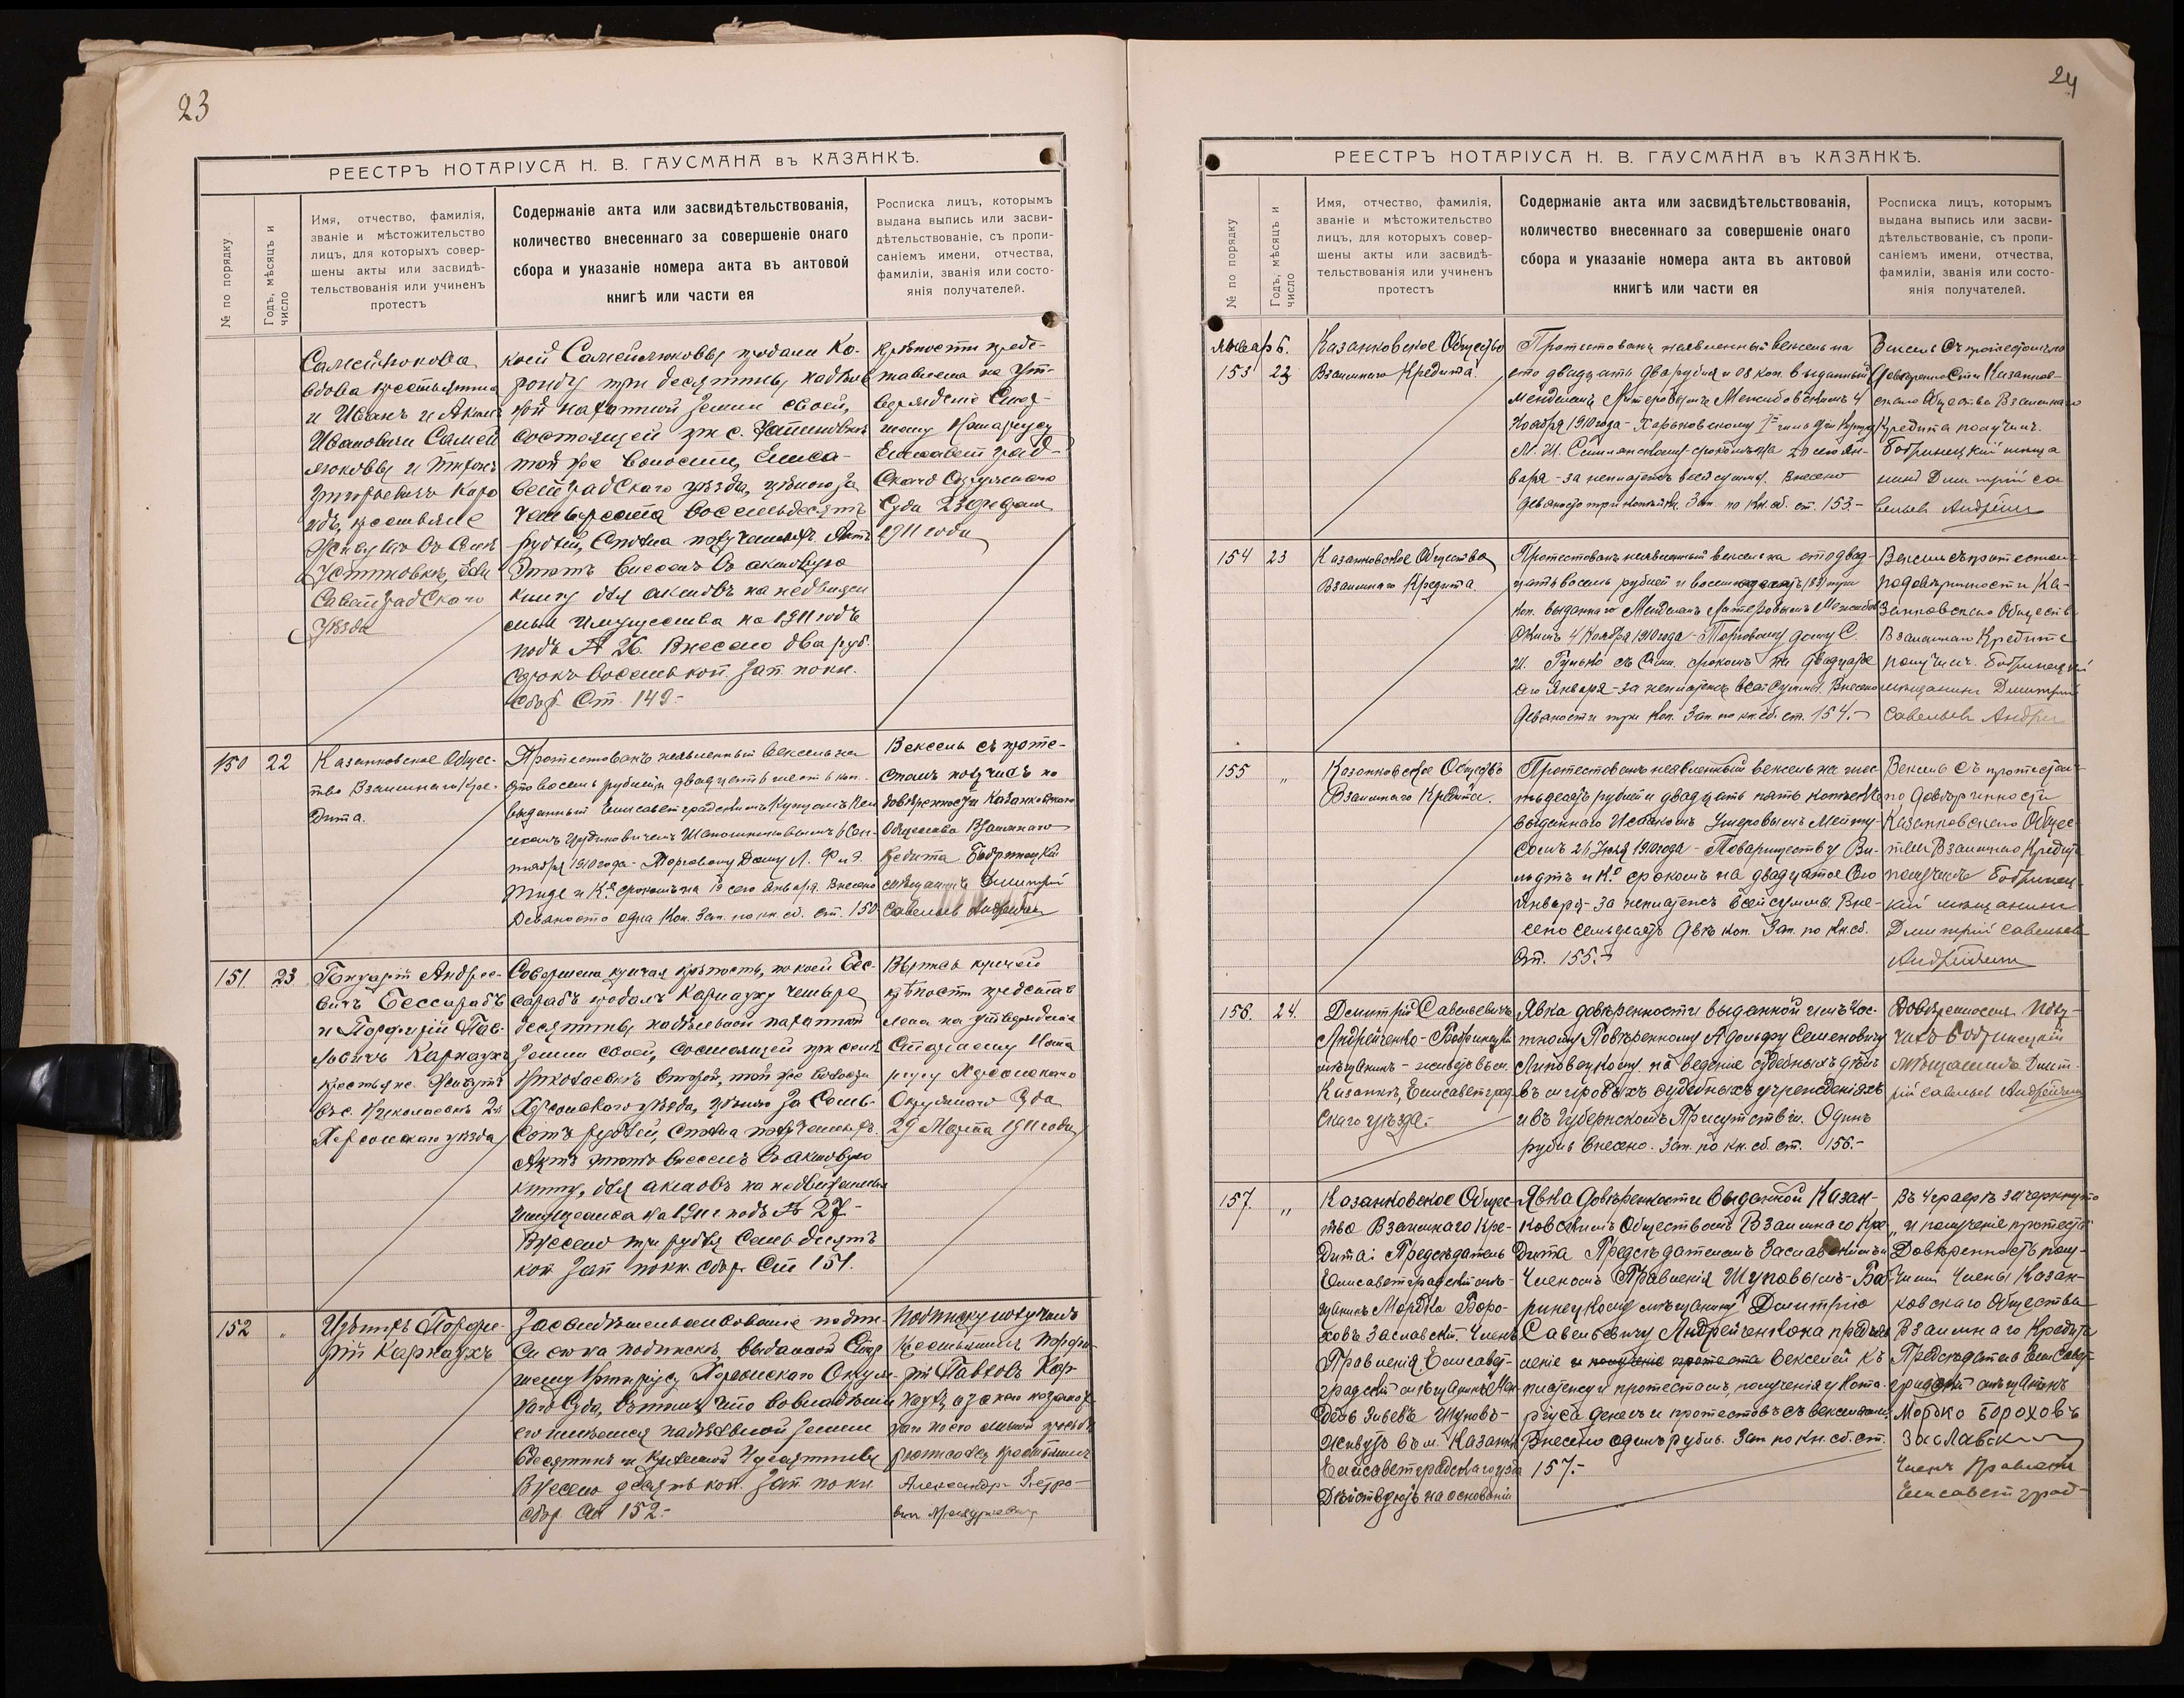 23
РЕЕСТРЪ НОТАРІУСА Н. В. ГАУСМАНА въ КАЗАНКѢ.
№ по порядку
Годъ, мѣсяцъ и
число
Имя, отчество, фамилія,
званіе и мѣстожительство
лицъ, для которыхъ совер-
шены акты или засвидѣ-
тельствованія или учиненъ
протестъ
Содержаніе акта или засвидѣтельствованія,
количество внесеннаго за совершеніе онаго
сбора и указаніе номера акта въ актовой
книгѣ или части ея
Росписка лицъ, которымъ
выдана выпись или засви-
дѣтельствованіе, съ пропи-
саніемъ имени, отчества,
фамиліи, званія или состо-
янія получателей.
Самойлюкова
вдова крестьянина
и Иванъ и Аким
Ивановичи Самой
люковы и
Григорьевичъ
крестьяне
Живутъ въ селѣ
Устиновкѣ, Ели
саветградскаго
Уѣзда
коей Самойлюковы продали Ко-
ронду три десятины надѣль
ной пахатной земли своей,
состоящей при с.
той же волости, Елиса-
ветградскаго уѣзда, цѣною за
четыреста восемьдесятъ
рублей, сполна полученныхъ. Актъ
этотъ внесенъ въ актовую
книгу для актовъ на недвижи
мыя имущества на 1911 годъ
подъ № 26. Внесено два руб.
сорокъ восемь коп. Зап. по кн.
сбор. Ст. 149.-
крѣпости предс-
тавлена на Ут-
вержденіе Стар-
шему Нотаріусу
Елисаветград-
скаго Окружнаго
Суда 23
1911 года
150
22
Казанковское Общес-
тво Взаимнаго Кре-
дита.
Протестованъ неявленный вексель на
сто восемь рублей и двадцать шесть коп.
выданный Елисаветградскимъ Купцомъ
Сен-
тября 1910 года - Торговому Дому Л. Ф и Э.
Тиде и Кº срокомъ на 19 сего Января. Внесено
девяносто одна Коп. Зап. по кн. сб. ст. 150
Вексель съ проте-
стомъ получилъ по
довѣренности Казанковскаго
Общества Взаимнаго
Кредита Бобринецкій
мѣщанинъ Дмитрій
Савельевъ
151
23
Андрее-
вичъ Бессарабъ
и Порфирій Пав-
ловичъ Карнаухъ
крестьяне. Живутъ
въ с. Николаевкѣ 2й
Херсонскаго уѣзда
Совершена купчая крѣпость, по коей Бес-
сарабъ продалъ Карнауху четыре
десятины надѣльной пахатной
земли своей, состоящей при селѣ
Николаевкѣ второй, той же волости
Херсонскаго уѣзда, цѣною за семь-
сотъ рублей, сполна полученныхъ.
Актъ этотъ внесенъ въ актовую
книгу, для актовъ на недвижимыя
имущества на 1911 г. подъ № 27.-
Внесено три рубля семьдесятъ
коп. Зап. по кн. сбор. Ст. 151.
Выпись купчей
крѣпости представ
лена на утвержденіе
Старшему Нота
ріусу Херсонскаго
Окружнаго Суда
29 Марта 1911 года
152
"
Порфи-
рій Карнаухъ
Засвидѣтельствованіе подпи-
си его на подпискѣ, выданной Стар
шему Нотаріусу Херсонскаго Окруж-
наго Суда, въ томъ, что во владѣніи
его имѣется надѣльной земли
десятинъ и купленной десятины
Внесено десять коп. Зап. по кн.
сбор. Ст. 152.-
Подписку получилъ
Крестьянинъ Порфи-
рій Павловъ Кар
наухъ, а за него неграмот
наго по его личной просьбѣ
росписался крестьянинъ
Александръ Петро-
вичъ
24
РЕЕСТРЪ НОТАРІУСА Н. В. ГАУСМАНА въ КАЗАНКѢ.
№ по порядку
Годъ, мѣсяцъ и
число
Имя, отчество, фамилія,
званіе и мѣстожительство
лицъ, для которыхъ совер-
шены акты или засвидѣ-
тельствованія или учиненъ
протестъ
Содержаніе акта или засвидѣтельствованія,
количество внесеннаго за совершеніе онаго
сбора и указаніе номера акта въ актовой
книгѣ или части ея
Росписка лицъ, которымъ
выдана выпись или засви-
дѣтельствованіе, съ пропи-
саніемъ имени, отчества,
фамиліи, званія или состо-
янія получателей.
Январь.
153
23
Казанковское Общество
Взаимнаго Кредита.
Протестованъ неявленный вексель на
сто двадцать два рубля и 08 коп. выданный
Менделемъ Лейтеровымъ Межибовскимъ 4
Ноября 1910 года - Харьковскому 1й гильдіи Купцу
М. И. срокомъ на 20 сего Ян-
варя - за неплатежъ всей суммы. Внесено
девяносто три копѣйки. Зап. по Кн. сб. ст. 153.-
Вексель съ протестомъ по
довѣренности Казанков-
скаго Общества Взаимнаго
Кредита получилъ.
Бобринецкій мѣща
нинъ Дмитрій Са
вельевъ
154
23
Казанковское Общество
Взаимнаго Кредита.
Протестованъ неявленный вексель на сто двад-
цать восемь рублей и восемьдесятъ (83) три
коп. выданнаго Менделемъ Лейтеровымъ Межибов
скимъ 4 Ноября 1910 года - Торговому дому С.
И. съ Сын. срокомъ на двадцатое
сего Января - за неплатежъ всей суммы. Внесено
девяносто три Коп. Зап. по кн. сб. ст. 154.-
Вексель съ протестом
по довѣренности Ка-
занковскаго Обществ
Взаимнаго Кредита
получилъ. Бобринецкій
мѣщанинъ Дмитрій
Савельевъ
155
"
Казанковское Общество
Взаимнаго Кредита.
Протестованъ неявленный вексель на шес-
тьдесятъ рублей и двадцать пять копѣекъ
выданнаго Исаакомъ
21 Іюля 1910 года - Товариществу
и Кº срокомъ на двадцатое Сего
Января - за неплатежъ всей суммы. Вне-
сено семьдесятъ двѣ коп. Зап. по Кн. сб.
Ст. 155.-
Вексель съ протестом
по довѣренности
Казанковскаго Общес
тва Взаимнаго Кредита
получилъ Бобринец-
кій мѣщанинъ
Дмитрій Савельевъ
156.
24.
Дмитрій Савельевичъ
Андрейченко - Бобринецкій
мѣщанинъ - живетъ въ м.
Казанкѣ, Елисаветград
скаго уѣзда.-
Явка довѣренности выданной имъ Час-
тному Повѣренному Адольфу Семеновичу
Липовецкому на веденіе судебныхъ дѣлъ
въ мировыхъ судебныхъ учрежденіяхъ
и въ Губернскомъ Присутствіи. Одинъ
рубль внесено. Зап. по кн. сб. ст. 156.-
Довѣренность полу-
чилъ Бобринецкій
мѣщанинъ Дмит-
рій Савельевъ
157.
"
Казанковское Общес-
тво Взаимнаго Кре-
дита: Предсѣдатель
Елисаветградскій мѣ-
щанинъ Мордко Боро-
ховъ Заславскій. Членъ
Правленія, Елисавет-
градскій мѣщанинъ Мен-
дель Зивевъ Шуповъ-
живутъ въ м. Казанкѣ
Елисаветградскаго уѣзда
Дѣйствуютъ на основаніи
Явка довѣренности выданной Казан-
ковскимъ Обществомъ Взаимнаго Кре-
дита Предсѣдателемъ Заславскимъ и
Членомъ Правленія Шуповымъ - Боб-
ринецкому мѣщанину Дмитрію
Савельевичу Андрейченко на предъяв
леніе и полученіе протеста векселей къ
платежу и протестамъ, полученія у Нота-
ріуса денегъ и протестовъ съ векселями.
Внесено одинъ рубль. Зап. по Кн. сб. ст.
157.-
Въ 4 графѣ зачеркнуто
"и полученіе протеста"
Довѣренность полу-
чили Члены Казан-
ковскаго Общества
Взаимнаго Кредита
Предсѣдатель Елисавет-
градскій мѣщанинъ
Мордко Бороховъ
Заславскій
Членъ Правленія
Елисаветград-